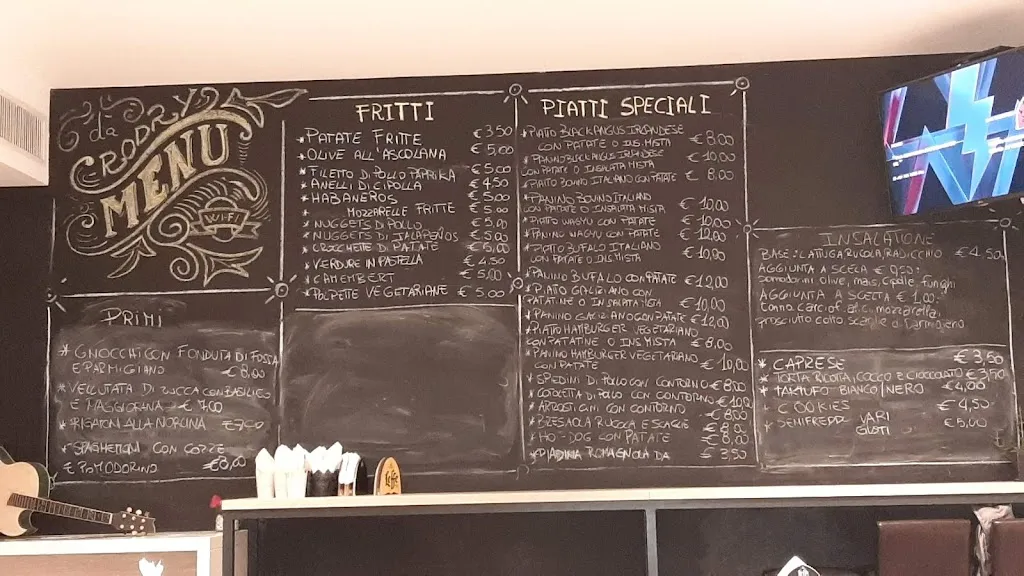 da
RODRY
MENU
WI-FI
PRIMI
* GNOCCHI CON FONDUTA DI
E PARMIGIANO € 8,00
* VELLUTATA DI ZUCCA CON BASILICO
E MAGGIORANA € 7,00
* RIGATONI ALLA NORCINA
* SPAGHETTONI CON COZZE
E POMODORINO €8,00
FRITTI
* PATATE FRITTE € 3,50
* OLIVE ALL'ASCOLANA € 5,00
* FILETTO DI POLLO PAPRIKA € 5,00
* ANELLI DI CIPOLLA € 4,50
* HABANEROS € 5,00
MOZZARELLE FRITTE € 5,00
* NUGGETS DI POLLO € 5,00
* NUGGETS DI JALAPEÑOS € 5,00
* CROCCHETTE DI PATATE € 5,00
* VERDURE IN PASTELLA € 4,50
* CAMEMBERT € 5,00
* POLPETTE VEGETARIANE € 5,00
PIATTI SPECIALI
* PIATTO BLACK ANGUS IRLANDESE
CON PATATE O INS. MISTA € 8,00
* PANINO BLACK ANGUS IRLANDESE
CON PATATE O INSALATA MISTA € 10,00
* PIATTO BOVINO ITALIANO CON PATATE € 8,00
* PANINO BOVINO ITALIANO
CON PATATE O INSALATA MISTA € 10,00
* PIATTO WAGYU CON PATATE € 10,00
* PANINO WAGYU CON PATATE € 12,00
* PIATTO BUFALO ITALIANO
CON PATATE O INS. MISTA € 10,00
* PANINO BUFALO CON PATATE € 12,00
* PIATO GALIZIANO CON
PATATINE O INS MISTA € 10,00
* PANINO GALIZIANO CON PATATE € 12,00
* PIATTO HAMBURGER VEGETARIANO
CON PATATINE O INS MISTA € 8,00
* PANINO HAMBURGER VEGETARIANO
CON PATATE € 10,00
* SPEDINI DI POLLO CON CONTORNO € 8,00
* COTOLETTA DI POLLO CON CONTORNO € 10,00
* ARROSTICINI CON CONTORNO € 8,00
* BRESAOLA RUCOLA E SCAGLIE € 8,00
* HOT-DOG CON PATATE € 8,00
* PIADINA ROMAGNOLA DA € 3,50
INSALATONE
BASE: LATTUGA RUCOLA, RADICCHIO € 4,50
AGGIUNTA A SCELTA € 0,50:
pomodorini olive, mais, cipolle, funghi
AGGIUNTA A SCELTA € 1,00:
tonno, carciofi, mozzarella,
prosciutto cotto scaglie di Parmigiano
* CAPRESE € 3,50
* TORTA RICOTTA, COCCO E CIOCCOLATO
* TARTUFO BIANCO/NERO € 4,00
* COOKIES € 4,50
* SEMIFREDDI VARI GUSTI € 5,00